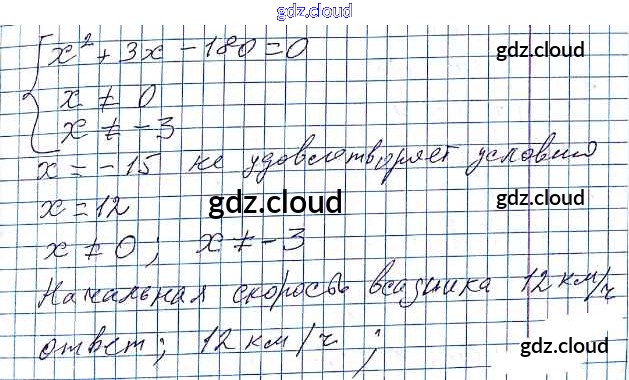 gdz.cloud
x² + 3x - 180 = 0 gdz.cloud
x ≠ 0
x ≠ -3
x = -15 не удовлетворяет условию
x = 12 gdz.cloud gdz.cloud
x ≠ 0; x ≠ -3
Начальная скорость всадника 12 км/ч
ответ; 12 км/ч; gdz.cloud